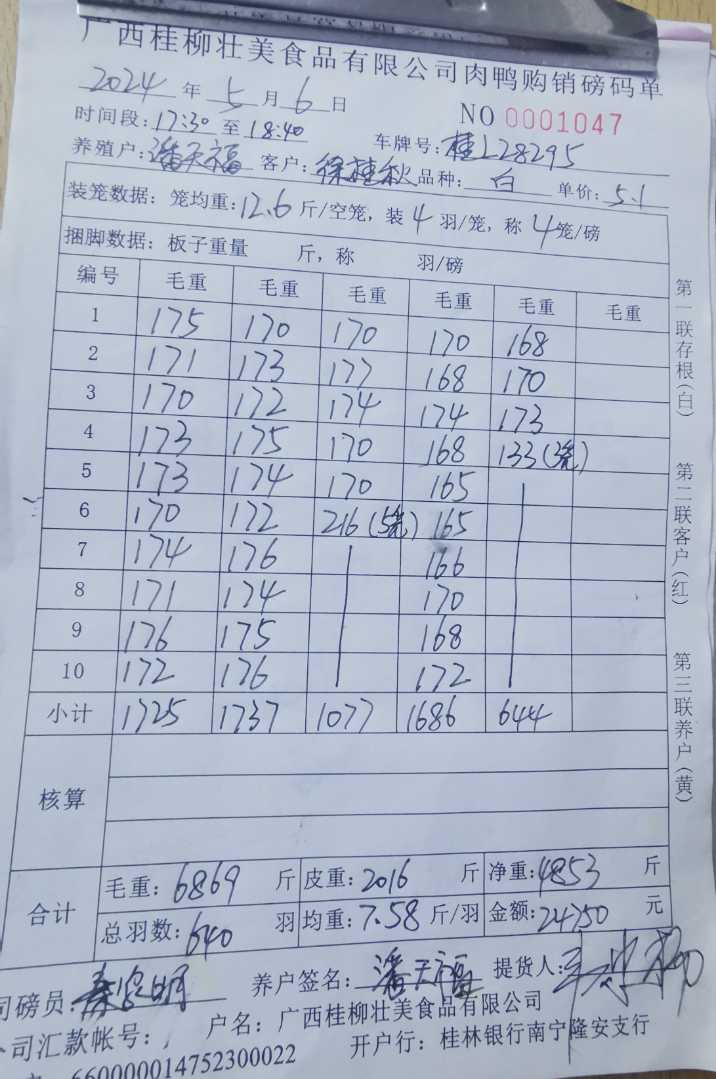 广西桂柳壮美食品有限公司肉鸭购销磅码单
2024年5月6日 NO 0001047
时间段:17:30至18:40 车牌号:桂L28295
养殖户:潘天福 客户:徐桂秋 品种:白 单价:5.1
装笼数据:笼均重:12.6斤/空笼,装4羽/笼,称4笼/磅
捆脚数据:板子重量 斤,称 羽/磅
编号 毛重 毛重 毛重 毛重 毛重 毛重
1 175 170 170 170 168
2 171 173 177 168 170
3 170 172 174 174 173
4 173 175 170 168 133(3笼)
5 173 174 170 165
6 170 172 216(5笼) 165
7 174 176 166
8 171 174 170
9 176 175 168
10 172 176 172
小计 1725 1737 1077 1686 644
核算
合计 毛重:6869斤 皮重:2016斤 净重:4853斤
总羽数:640羽 均重:7.58斤/羽 金额:24750元
司磅员: 养户签名:潘天福 提货人:
公司汇款帐号: 户名:广西桂柳壮美食品有限公司
660000014752300022 开户行:桂林银行南宁隆安支行
第一联存根(白)
第二联客户(红)
第三联养户(黄)